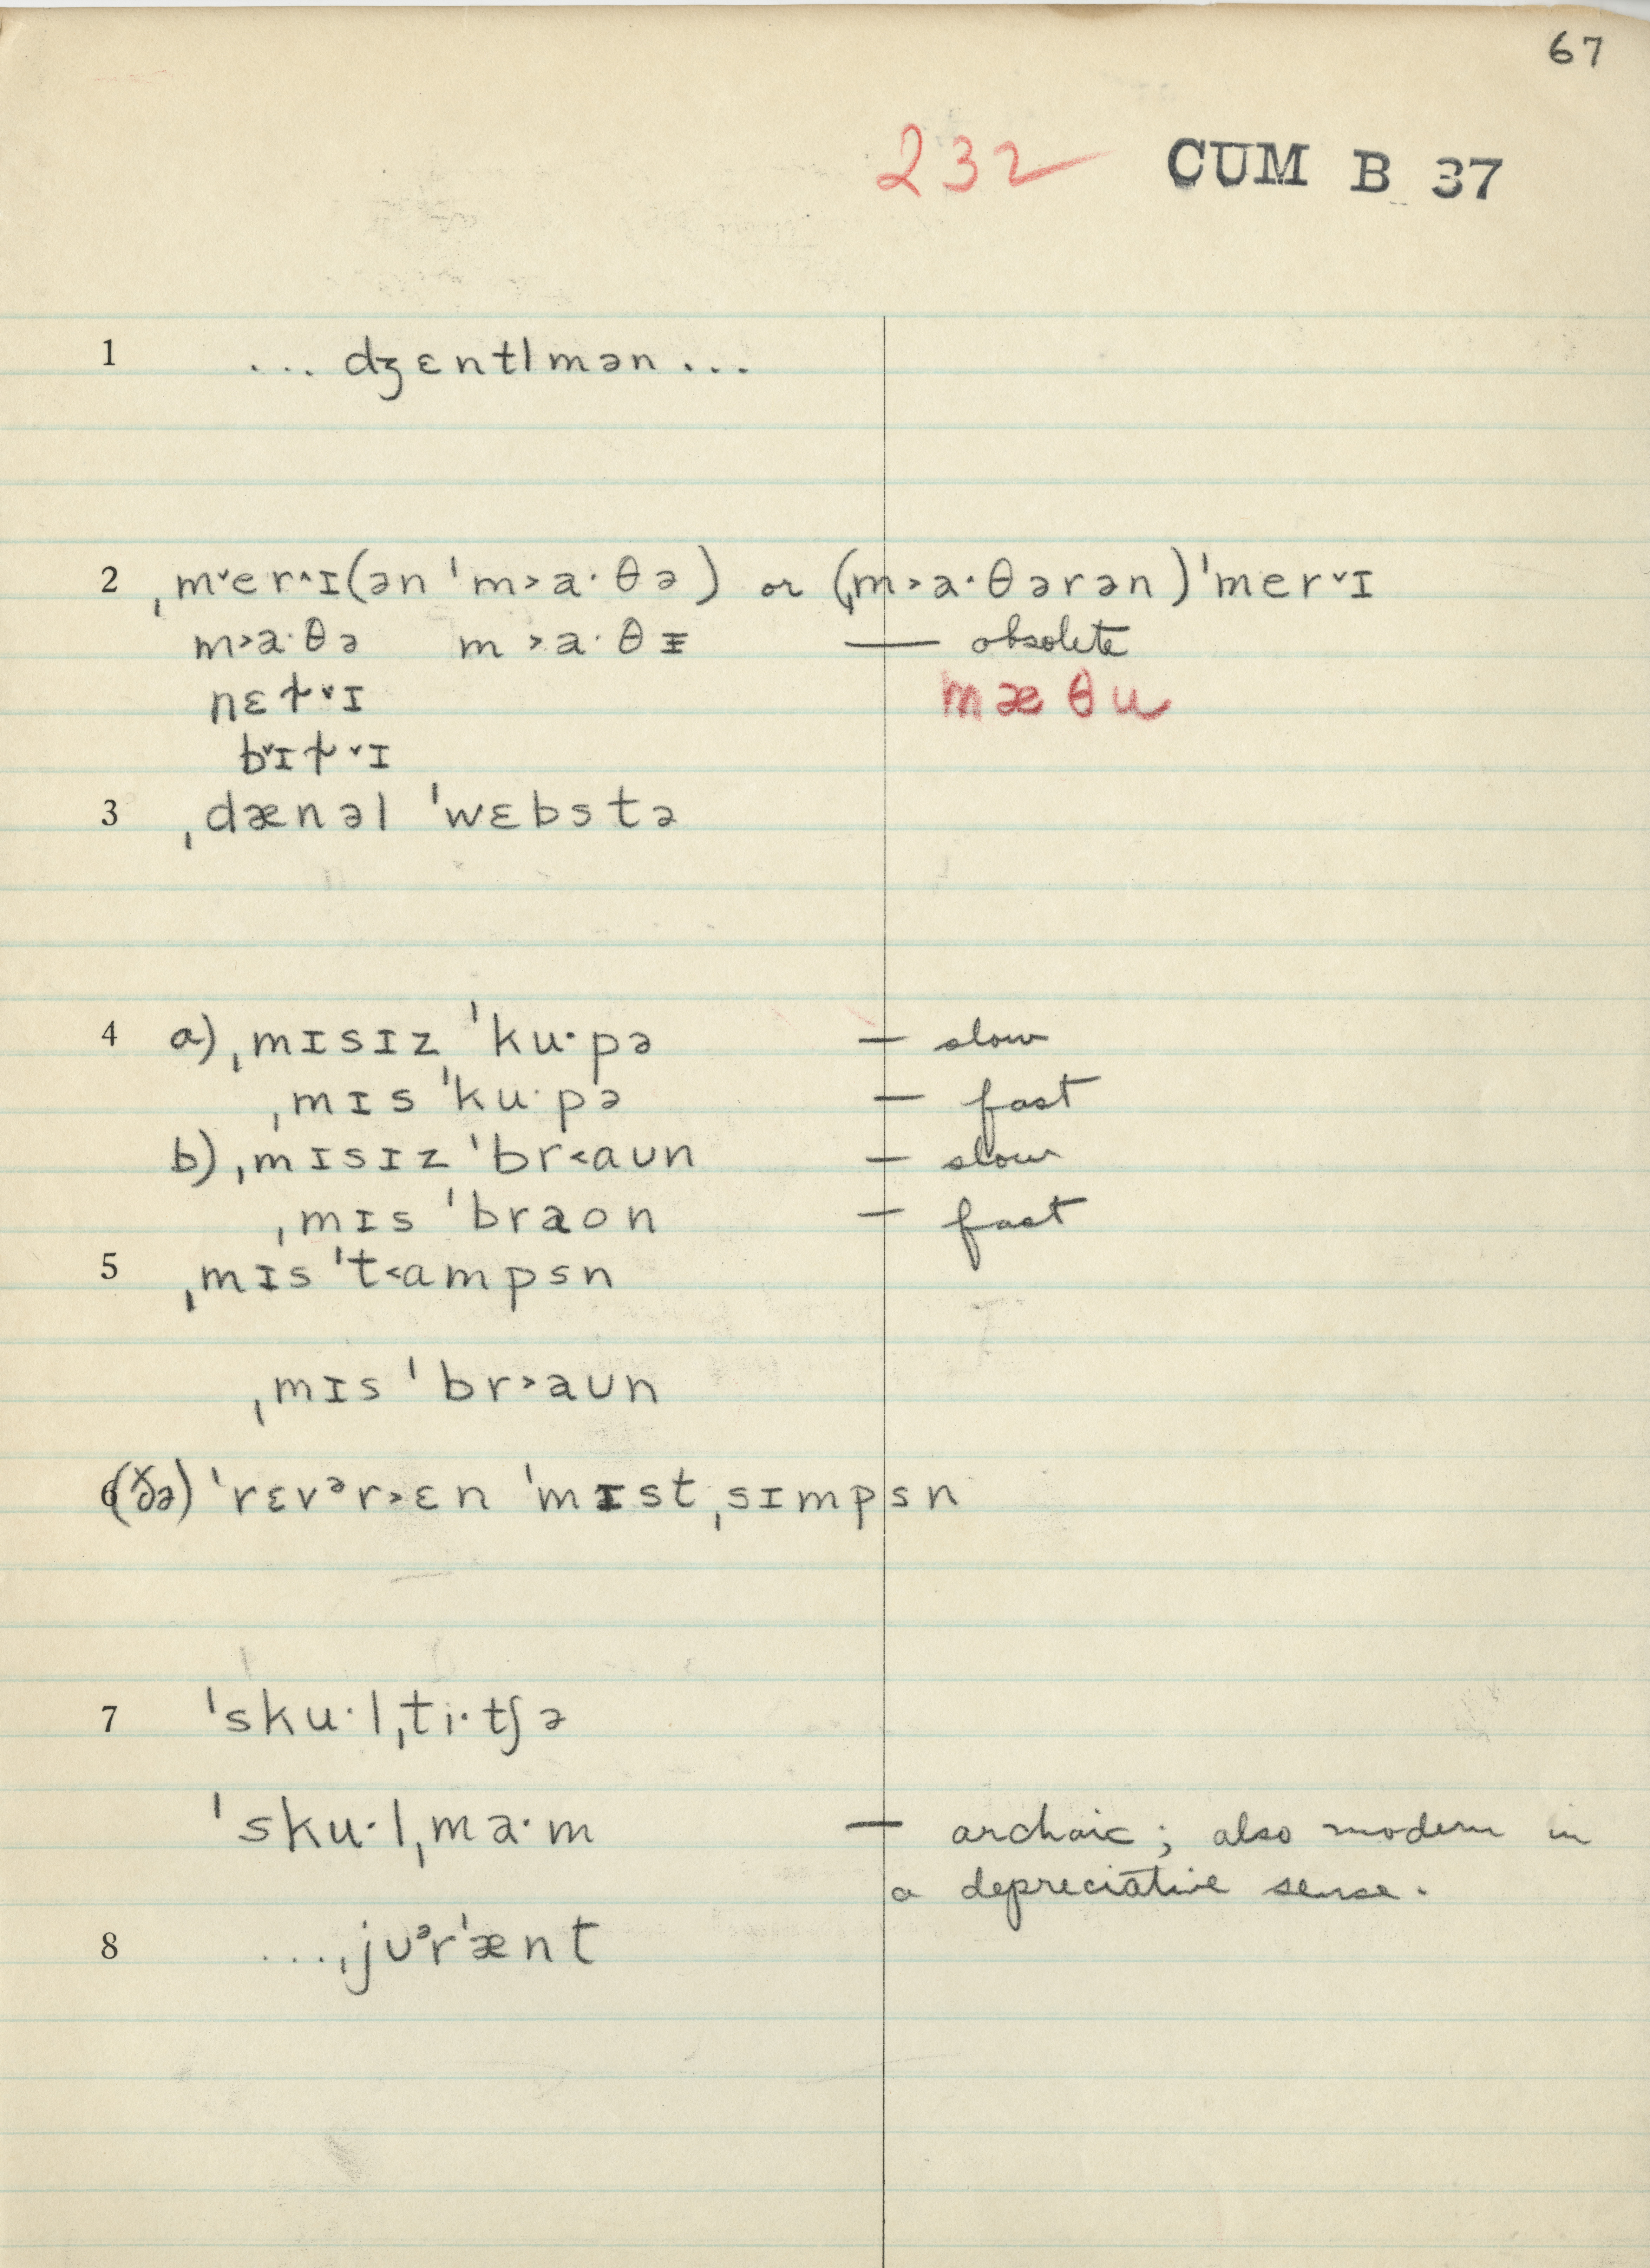 67
232 CUM B 37
1 ... dʒɛntlmən ...
2 ˌm˅er˄ɪ(ən ˈm˃a·θə) or (ˌm˃a·θərən)ˈmer˅ɪ
m˃a·θə m˃a·θᵻ — obsolete
nɛt̬˅ɪ mæθu
b˅ɪt̬˅ɪ
3 ˌdænəl ˈwɛbstə
4 a) ˌmɪsɪz ˈku·pə — slow
ˌmɪs ˈku·pə — fast
b) ˌmɪsɪz ˈbr˂aʊn — slow
ˌmɪs ˈbraon — fast
5 ˌmɪs ˈt˂ɑmpsn
ˌmɪs ˈbr˃aʊn
6 (ðə) ˈrɛvᵊr˃ɛn ˈmɪstˌsɪmpsn
7 ˈsku·lˌti·tʃə
ˈsku·lˌma·m — archaic; also modern in
a depreciative sense.
8 ...ˌjʊᵊrˈænt